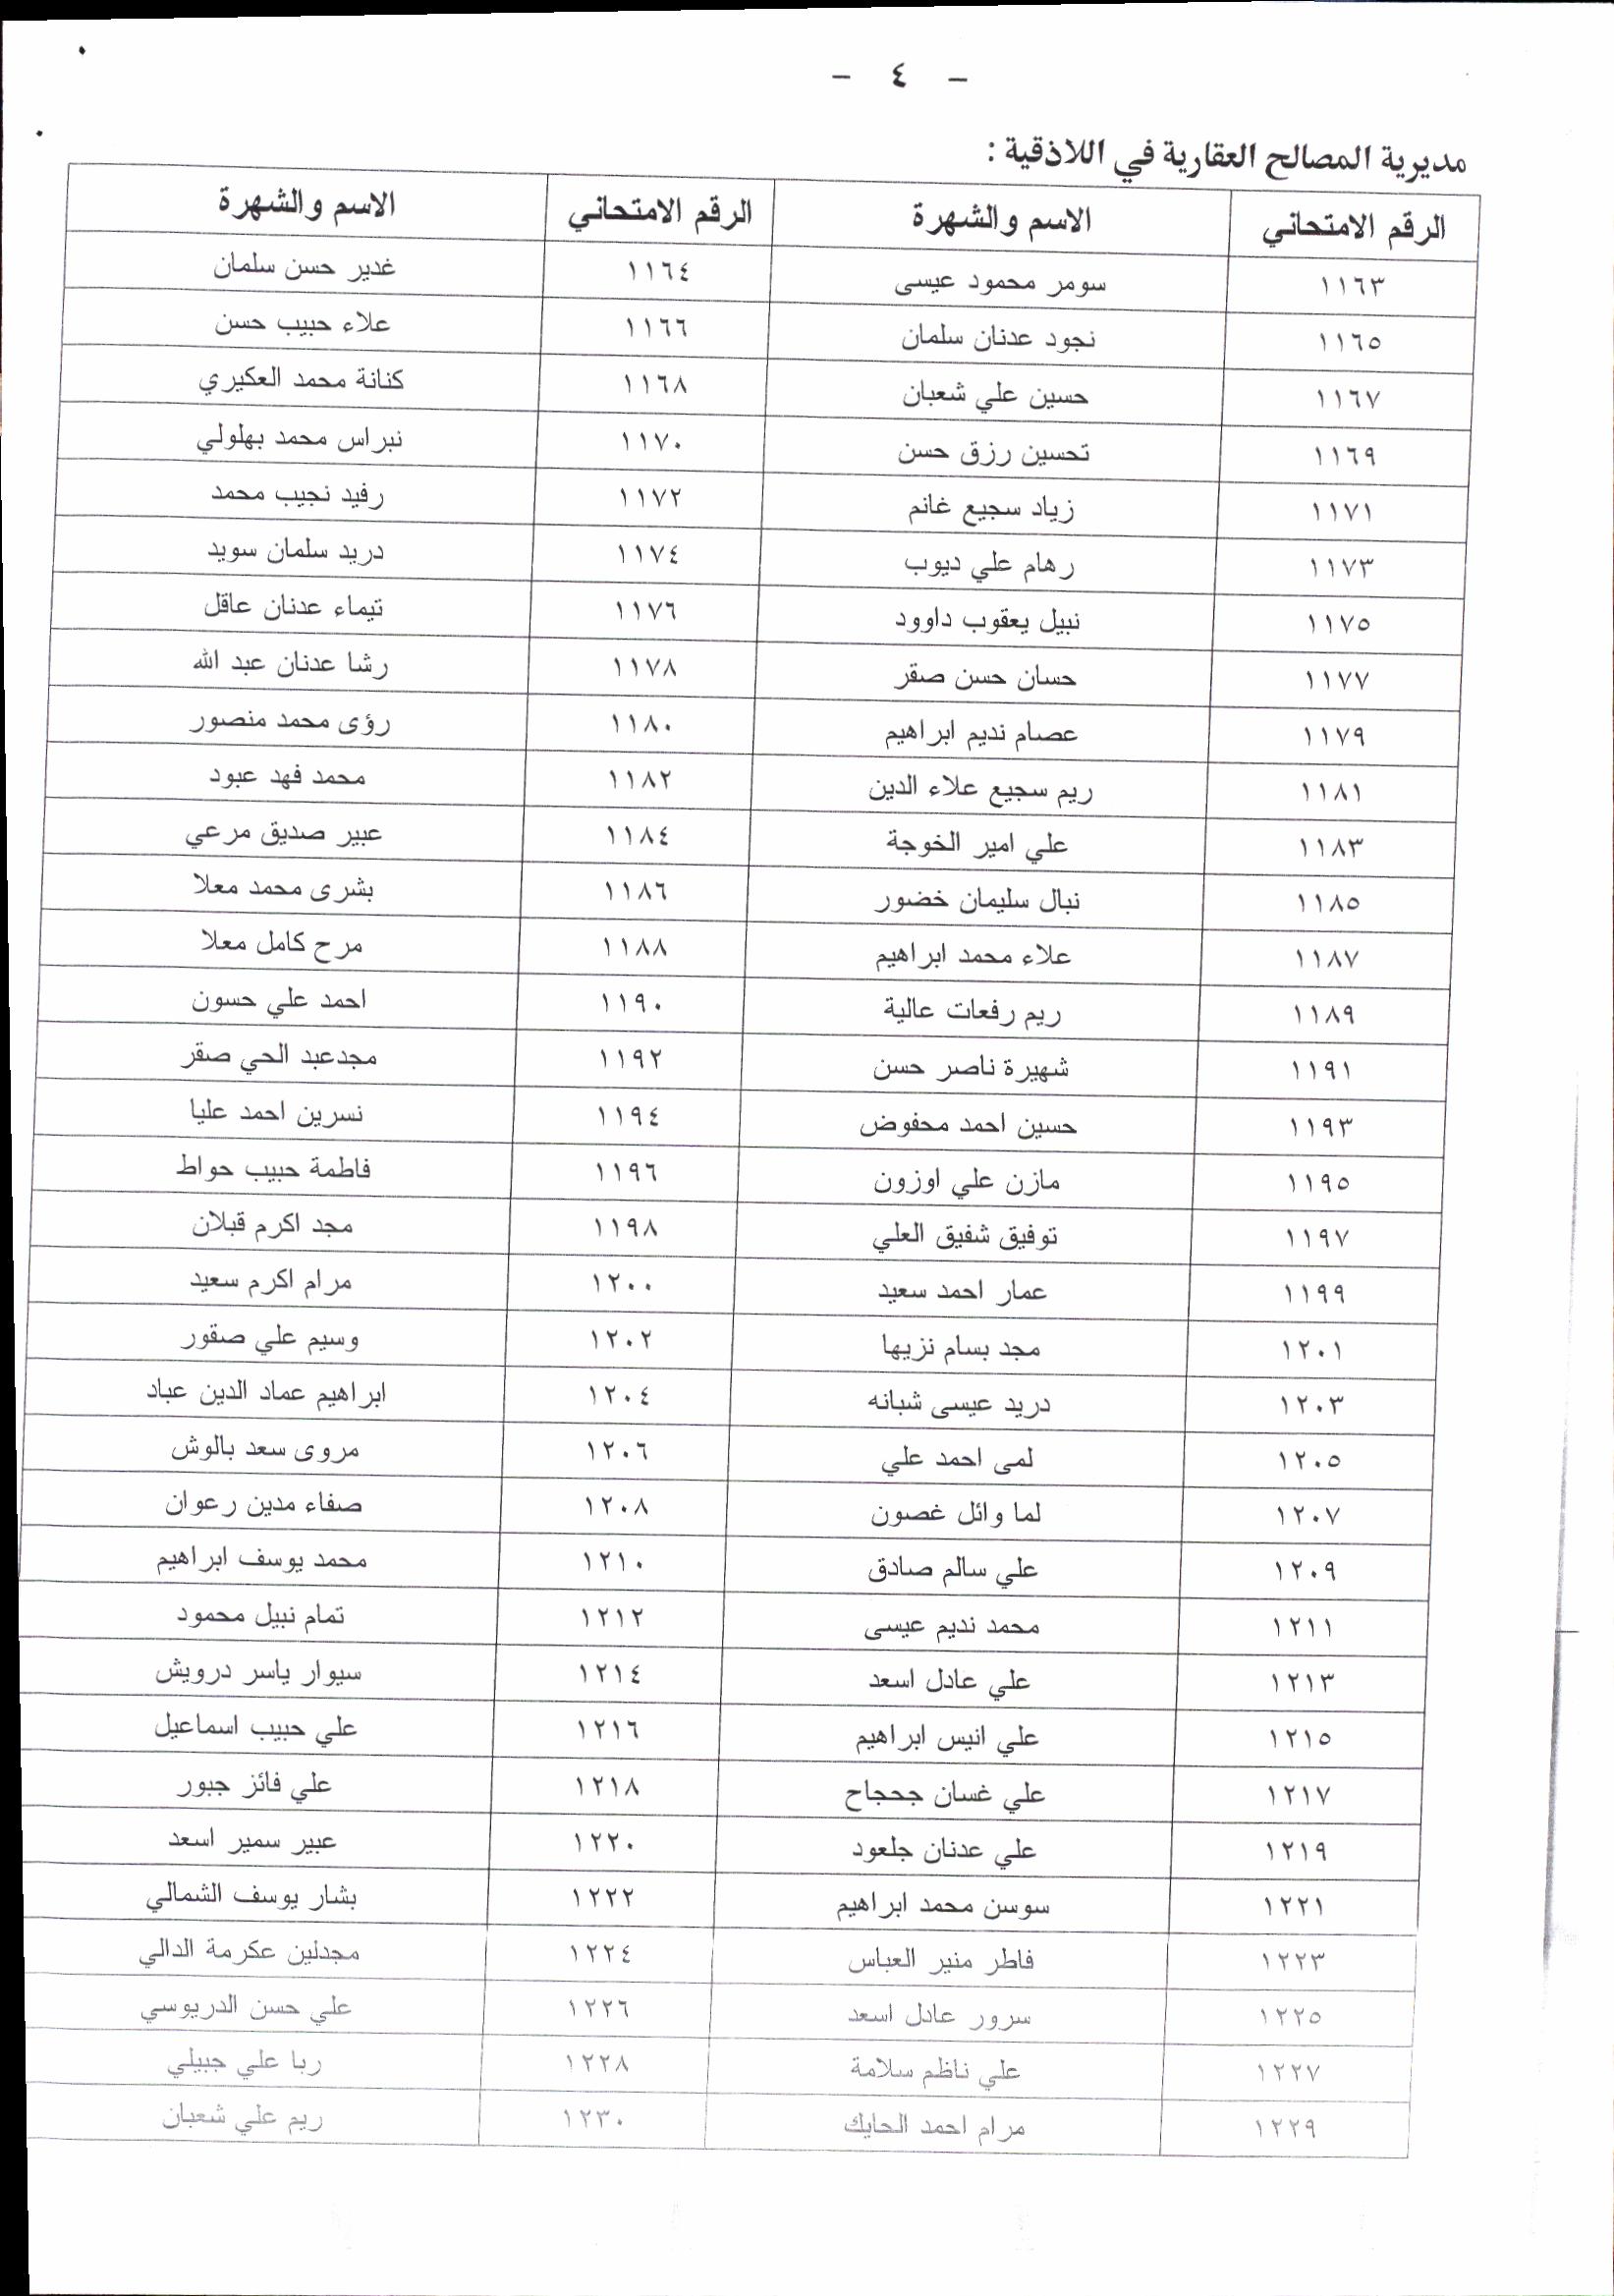 - ٤ -
مديرية المصالح العقارية في اللاذقية :
الرقم الامتحاني الاسم والشهرة الرقم الامتحاني الاسم والشهرة
١١٦٣ سومر محمود عيسى ١١٦٤ غدير حسن سلمان
١١٦٥ نجود عدنان سلمان ١١٦٦ علاء حبيب حسن
١١٦٧ حسين علي شعبان ١١٦٨ كنانة محمد العكيري
١١٦٩ تحسين رزق حسن ١١٧٠ نبراس محمد بهلولي
١١٧١ زياد سجيع غانم ١١٧٢ رفيد نجيب محمد
١١٧٣ رهام علي ديوب ١١٧٤ دريد سلمان سويد
١١٧٥ نبيل يعقوب داوود ١١٧٦ تيماء عدنان عاقل
١١٧٧ حسان حسن صقر ١١٧٨ رشا عدنان عبد الله
١١٧٩ عصام نديم ابراهيم ١١٨٠ رؤى محمد منصور
١١٨١ ريم سجيع علاء الدين ١١٨٢ محمد فهد عبود
١١٨٣ علي امير الخوجة ١١٨٤ عبير صديق مرعي
١١٨٥ نبال سليمان خضور ١١٨٦ بشرى محمد معلا
١١٨٧ علاء محمد ابراهيم ١١٨٨ مرح كامل معلا
١١٨٩ ريم رفعات عالية ١١٩٠ احمد علي حسون
١١٩١ شهيرة ناصر حسن ١١٩٢ مجدعبد الحي صقر
١١٩٣ حسين احمد محفوض ١١٩٤ نسرين احمد عليا
١١٩٥ مازن علي اوزون ١١٩٦ فاطمة حبيب حواط
١١٩٧ توفيق شفيق العلي ١١٩٨ مجد اكرم قبلان
١١٩٩ عمار احمد سعيد ١٢٠٠ مرام اكرم سعيد
١٢٠١ مجد بسام نزيها ١٢٠٢ وسيم علي صقور
١٢٠٣ دريد عيسى شبانه ١٢٠٤ ابراهيم عماد الدين عباد
١٢٠٥ لمى احمد علي ١٢٠٦ مروى سعد بالوش
١٢٠٧ لما وائل غصون ١٢٠٨ صفاء مدين رعوان
١٢٠٩ علي سالم صادق ١٢١٠ محمد يوسف ابراهيم
١٢١١ محمد نديم عيسى ١٢١٢ تمام نبيل محمود
١٢١٣ علي عادل اسعد ١٢١٤ سيوار ياسر درويش
١٢١٥ علي انيس ابراهيم ١٢١٦ علي حبيب اسماعيل
١٢١٧ علي غسان جحجاح ١٢١٨ علي فائز جبور
١٢١٩ علي عدنان جلعود ١٢٢٠ عبير سمير اسعد
١٢٢١ سوسن محمد ابراهيم ١٢٢٢ بشار يوسف الشمالي
١٢٢٣ فاطر منير العباس ١٢٢٤ مجدلين عكرمة الدالي
١٢٢٥ سرور عادل اسعد ١٢٢٦ علي حسن الدريوسي
١٢٢٧ علي ناظم سلامة ١٢٢٨ ربا علي جبيلي
١٢٢٩ مرام احمد الحايك ١٢٣٠ ريم علي شعبان